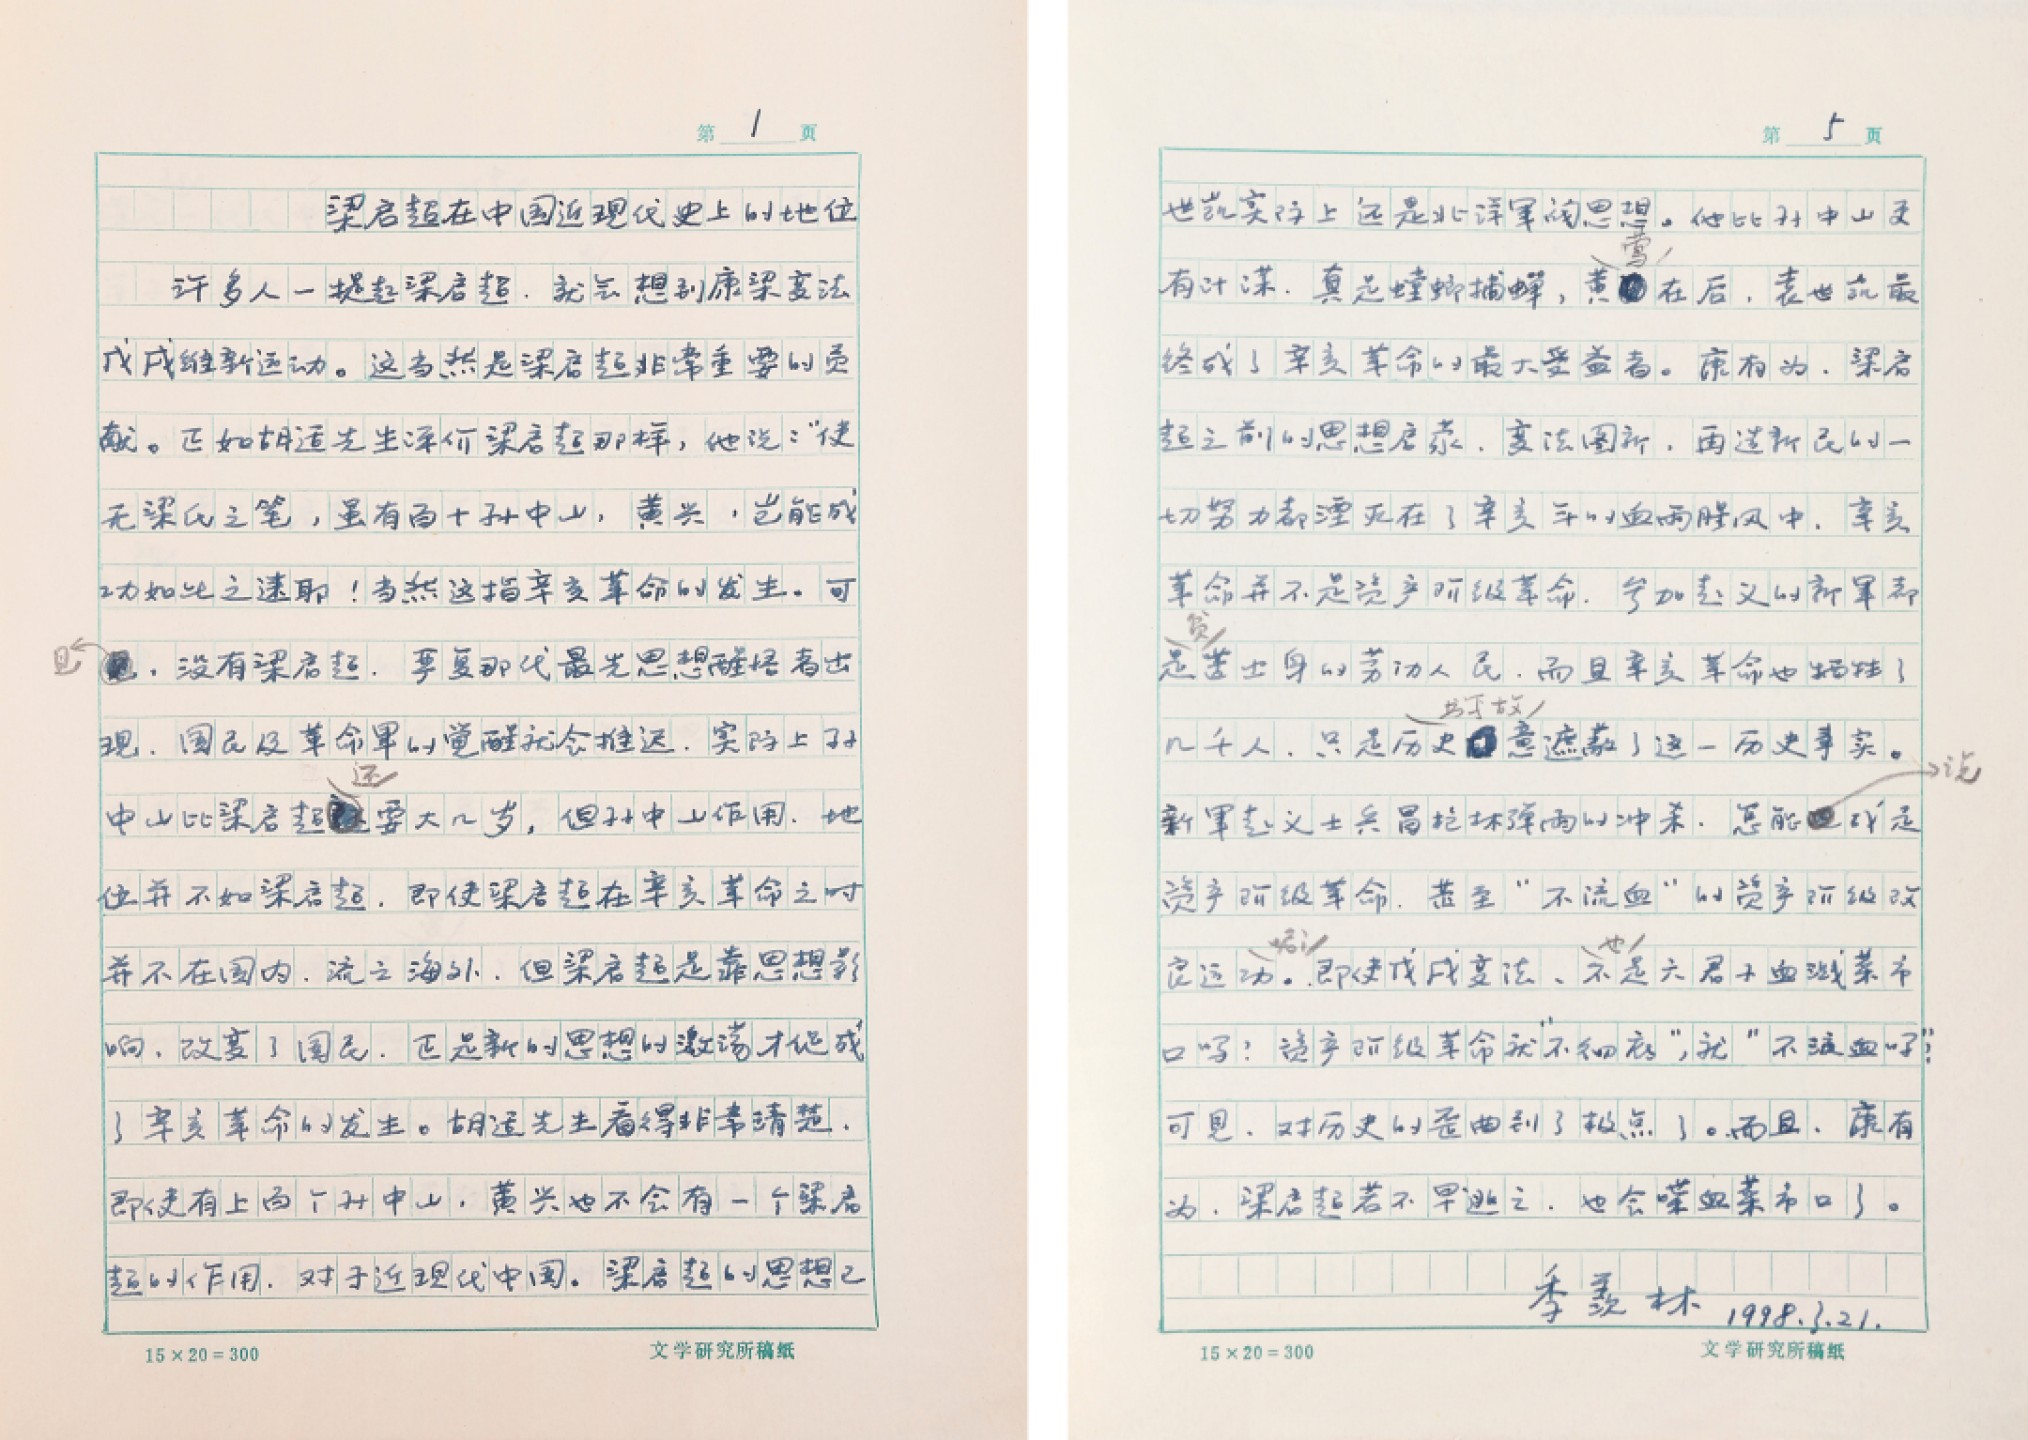 第 1 页
梁启超在中国近现代史上的地位
许多人一提起梁启超,就会想到康梁变法
戊戌维新运动。这当然是梁启超非常重要的贡
献。正如胡适先生评价梁启超那样,他说:“使
无梁氏之笔,虽有百十孙中山,黄兴,岂能成
功如此之速耶!当然这指辛亥革命的发生。可
见
,没有梁启超,严复那代最先思想醒悟者出
现,国民及革命军的觉醒就会推迟,实际上孙
还
中山比梁启超要大几岁,但孙中山作用、地
位并不如梁启超,即使梁启超在辛亥革命之时
并不在国内,流亡海外,但梁启超是靠思想影
响,改变了国民,正是新的思想的激荡才促成
了辛亥革命的发生。胡适先生看得非常清楚,
即使有上百个孙中山,黄兴也不会有一个梁启
超的作用,对于近现代中国。梁启超的思想已
15×20=300
文学研究所稿纸
第 5 页
世凯实际上还是北洋军阀思想。他比孙中山更
莺
有计谋,真是螳螂捕蝉,黄在后,袁世凯最
终成了辛亥革命的最大受益者。康有为、梁启
超之前的思想启蒙,变法图新,再造新民的一
切努力都湮灭在了辛亥年的血雨腥风中,辛亥
革命并不是资产阶级革命,参加起义的新军都
贫
是苦出身的劳动人民,而且辛亥革命也牺牲了
书写故
几千人,只是历史意遮蔽了这一历史事实。
说
新军起义士兵冒枪林弹雨的冲杀,怎能成是
资产阶级革命,甚至“不流血”的资产阶级改
也
良运动。即使戊戌变法、不是六君子血溅菜市
口吗?资产阶级革命就“不彻底”,就“不流血吗”?
可见,对历史的歪曲到了极点了。而且,康有
为,梁启超若不早逃亡,也会喋血菜市口了。
季羡林 1998.3.21.
15×20=300
文学研究所稿纸